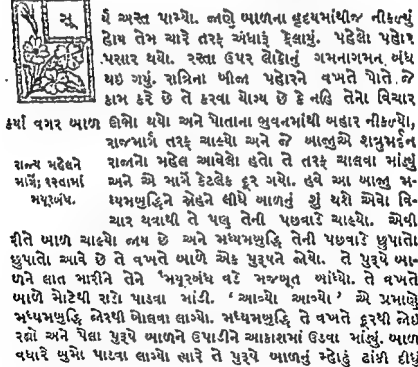 સૂર્ય અસ્ત પામ્યો. જાણે બાળના હૃદયમાંથીજ નીકળ્યું
હોય તેમ ચારે તરફ અંધારૂં ફેલાયું. પહેલો પહોર
પસાર થયો. રસ્તા ઉપર લોકોનું ગમનાગમન બંધ
થઇ ગયું. રાત્રિના બીજા પહોરને વખતે પોતે જે
કામ કરે છે તે કરવા યોગ્ય છે કે નહિ તેનો વિચાર
કર્યા વગર બાળ ઊભો થયો અને પોતાના ભુવનમાંથી બહાર નીકળ્યો,
રાજમાર્ગ તરફ ચાલ્યો અને જે બાજુએ શત્રુમર્દન
રાજાનો મહેલ આવેલો હતો તે તરફ ચાલવા માંડ્યું
અને એ માર્ગે કેટલેક દૂર ગયો. હવે આ બાજુ મ-
ધ્યમબુદ્ધિને સ્નેહને લીધે બાળનું શું થશે એવો વિ-
ચાર થવાથી તે પણ તેની પછવાડે ચાલ્યો. એવી
રાજ્ય મહેલને
માર્ગે; રસ્તામાં
મયૂરબંધ.
રીતે બાળ ચાલ્યો જાય છે અને મધ્યમબુદ્ધિ તેની પછવાડે છુપાતો
છુપાતો આવે છે તે વખતે બાળે એક પુરૂષને જોયો. તે પુરૂષે બા-
ળને લાત મારીને તેને મયૂરબંધ વડે મજબૂત બાંધ્યો. તે વખતે
બાળે મોટેથી રાડો પાડવા માંડી. 'આવ્યો આવ્યો' એ પ્રમાણે
મધ્યમબુદ્ધિ જોરથી બોલવા લાગ્યો. મધ્યમબુદ્ધિ તે વખતે દૂરથી જોઇ
રહ્યો અને પેલા પુરૂષે બાળને ઉપાડીને આકાશમાં ઉડવા માંડ્યું. બાળ
વધારે બુમો પાડવા લાગ્યો ત્યારે તે પુરૂષે બાળનું મ્હોઢું ઢાંકી દીધું